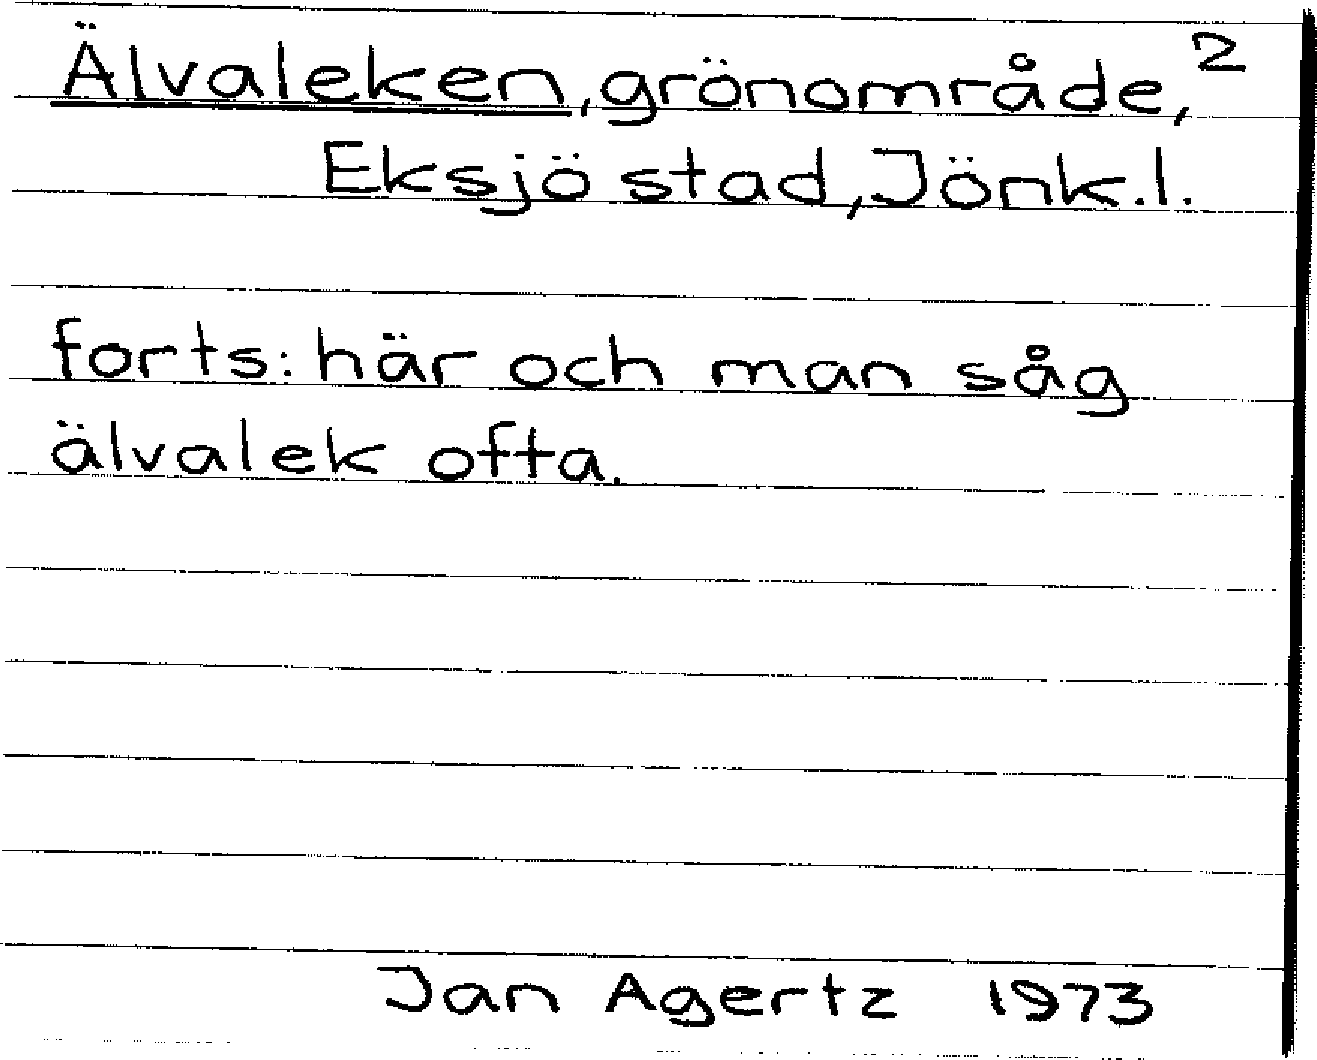 Älvaleken, grönområde, 2
Eksjö stad, Jönk.l.
forts: här och man såg
älvalek ofta.
Jan Agertz 1973